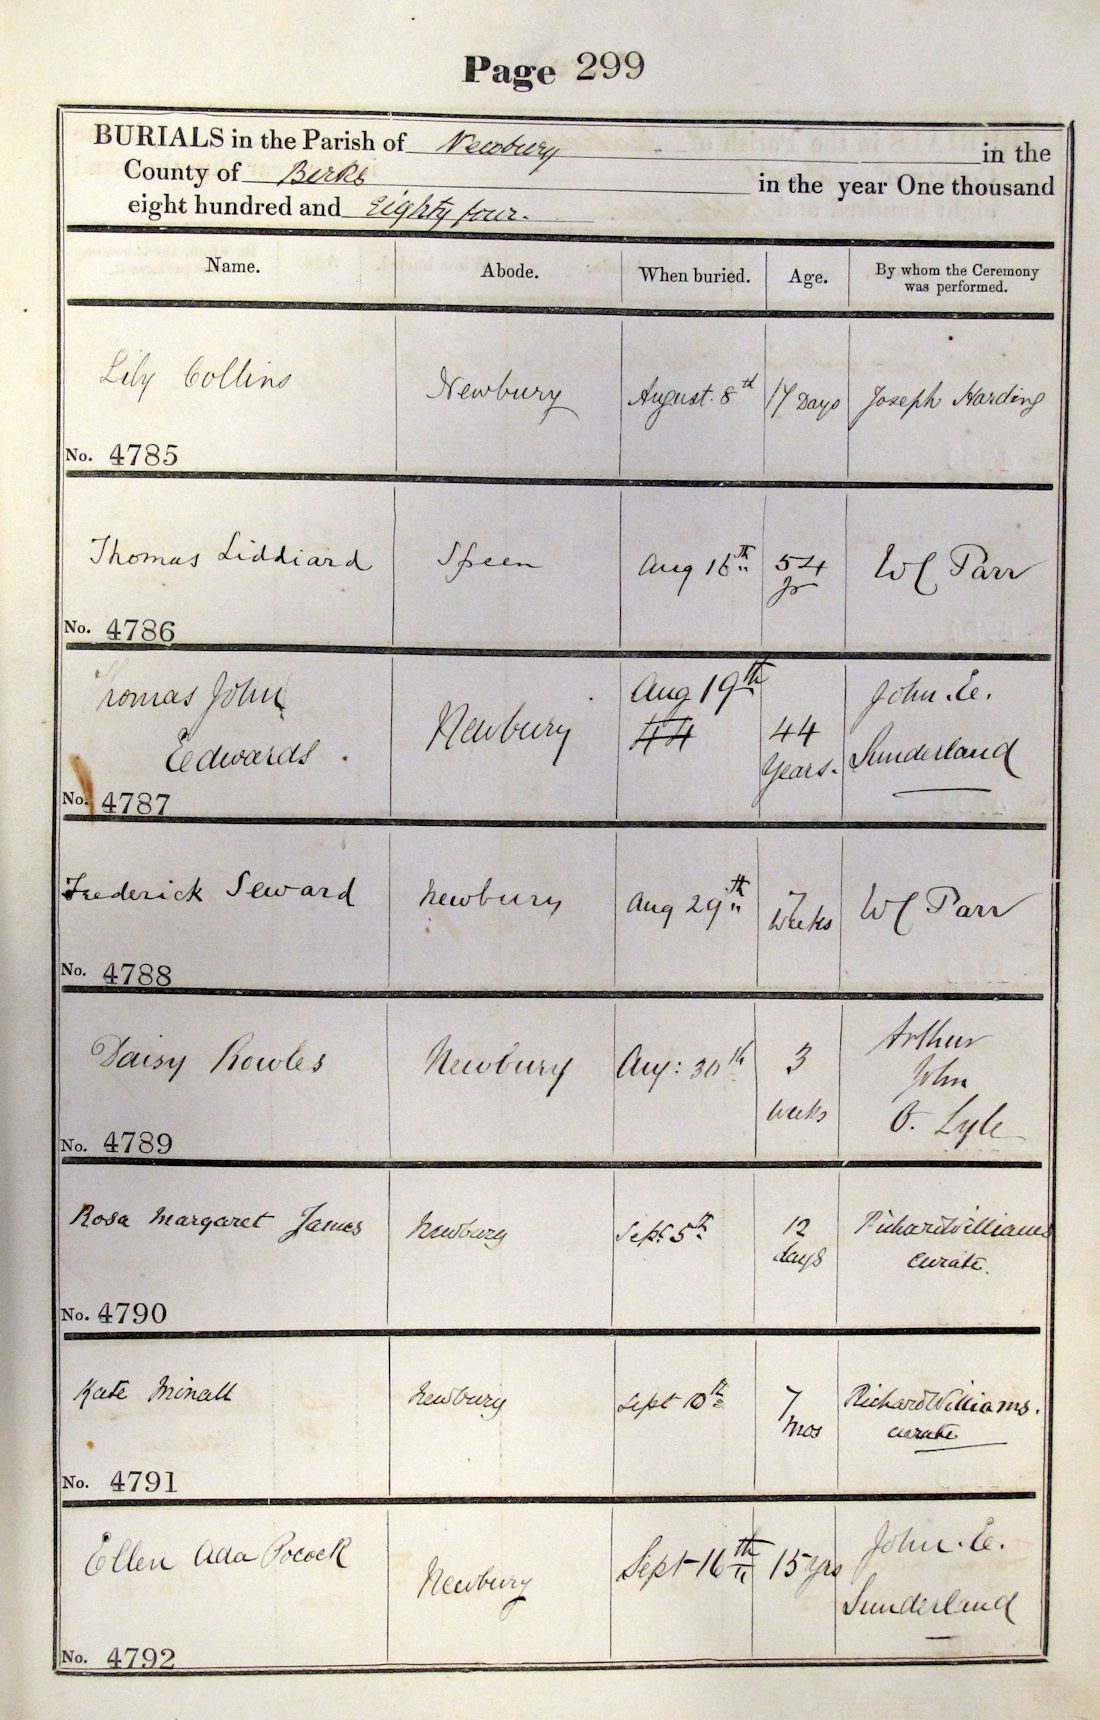 Page 299
BURIALS in the Parish of Newbury in the
County of Berks in the year One thousand
eight hundred and Eighty four.
Name. Abode. When buried. Age. By whom the Ceremony
was performed.
Lily Collins Newbury August. 8th 17 Days Joseph Harding
No. 4785
Thomas Liddiard Speen Aug 16th 54 W C Parr
yr
No. 4786
Thomas John Aug 19th John. E.
Eedwards Newbury 44 44 Sunderland
Years.
No. 4787
Frederick Seward Newbury Aug 29th 7 W C Parr
Weeks
No. 4788
Daisy Rowles Newbury Aug: 30th 3 Arthur
John
weeks O. Lyle
No. 4789
Rosa Margaret James Newbury Sept. 5th 12 Richard Williams
days curate.
No. 4790
Kate Minall Newbury Sept 10th 7 Richard Williams.
mos curate
No. 4791
Ellen Ada Pocock Newbury Sept 16th 15 yrs John. E.
Sunderland
No. 4792